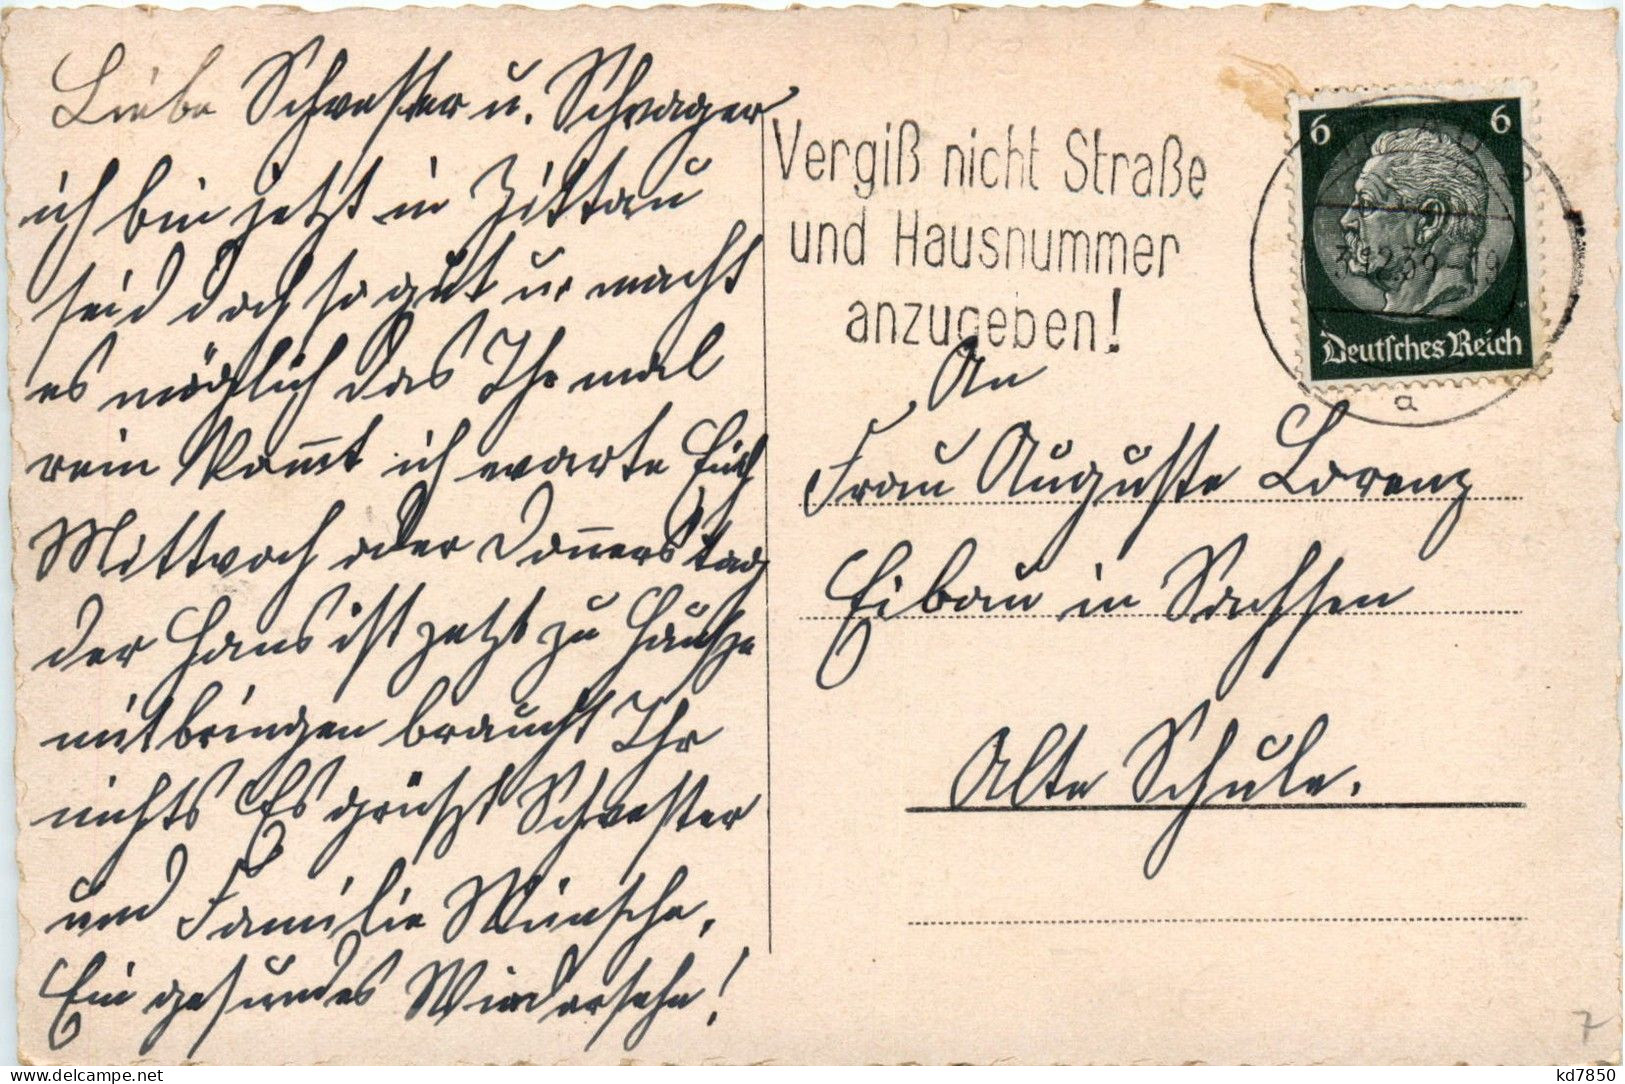 Liebe Schwester u. Schwager
ich bin jetzt in Zittau
seid doch so gut u. macht
es möglich das Ihr mal
rein kommt ich warte Euch
Mittwoch oder Donnerstag
der Hans ist jetzt zu Hausse
mitbringen braucht Ihr
nichts Es grüsst Schwester
und Familie Wünsche.
Ein gesundes Wiedersehn!
Vergiß nicht Straße
und Hausnummer
anzugeben!
6 6
Deutsches Reich
a
An
Frau Auguste Lorenz
Eibau in Sachsen
Alte Schule.
7
www.delcampe.net
kd7850